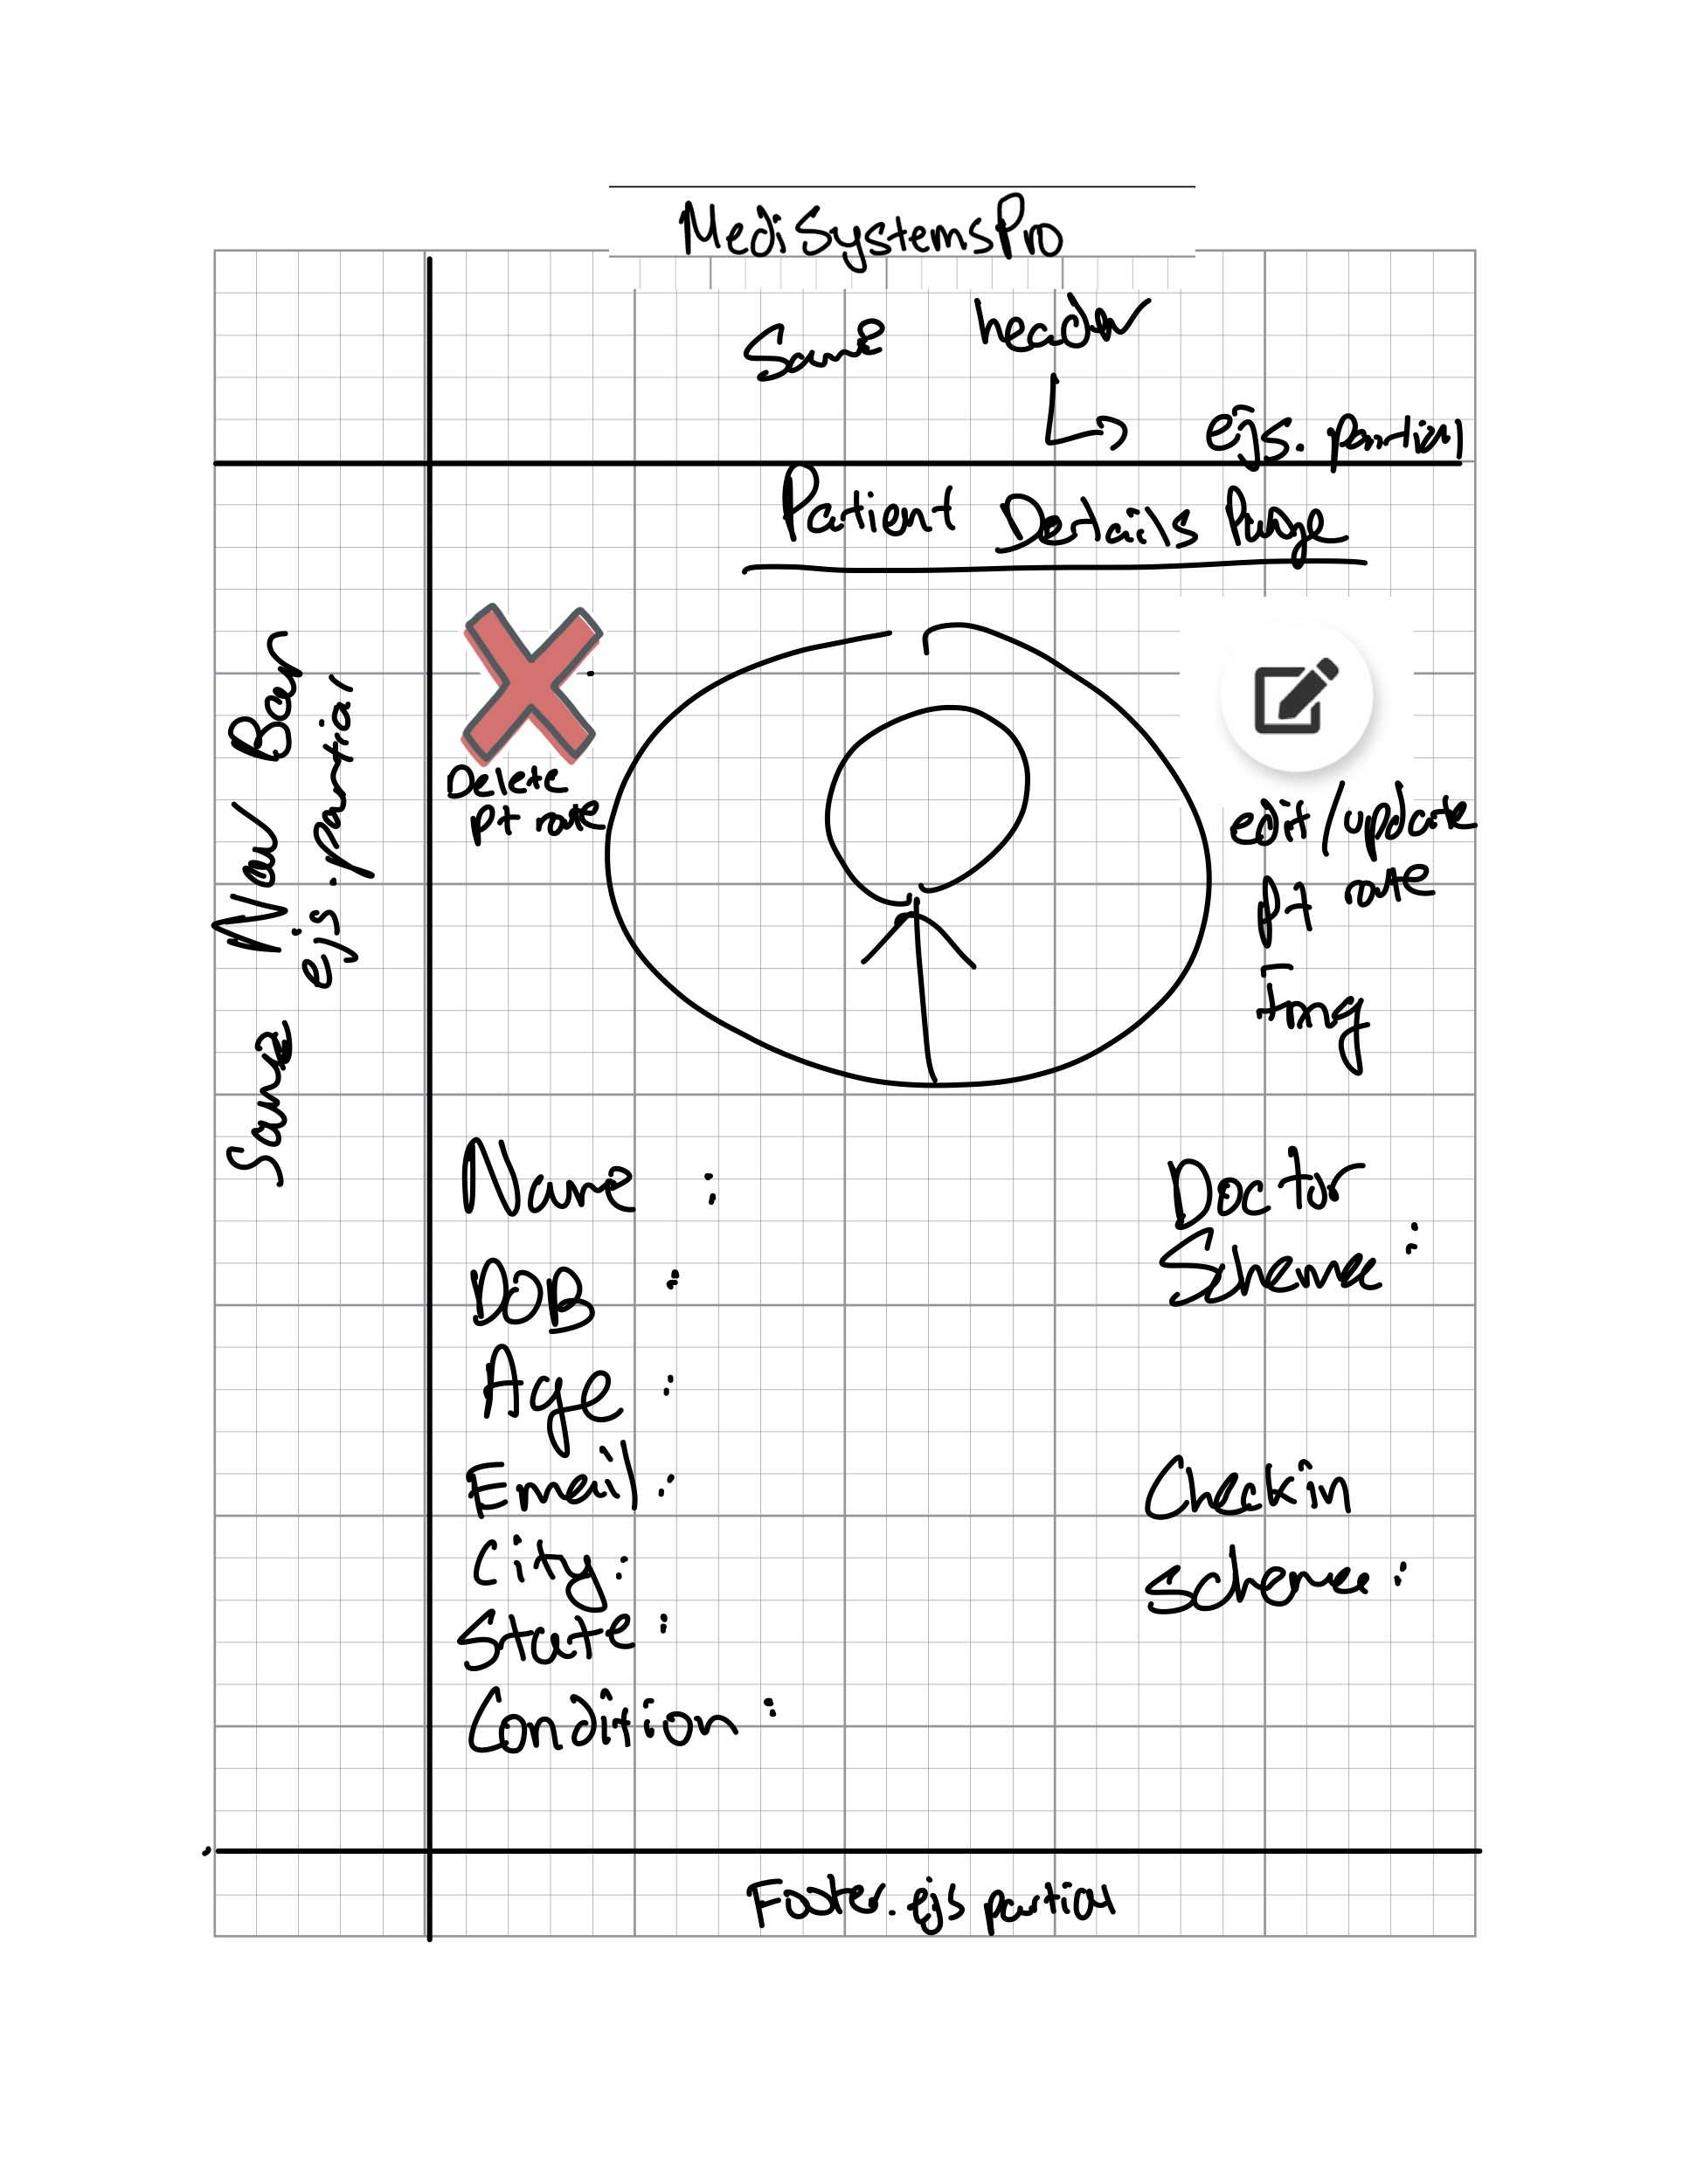 MediSystemsPro
Same header
ejs. partial
Patient Details Page
Same Nav Bar
ejs. partial
Delete
pt route
edit/update
pt route
Name :
DOB :
Age :
Email :
City :
State :
Condition :
Doctor
Schema :
Checkin
Schema :
Footer. ejs partial